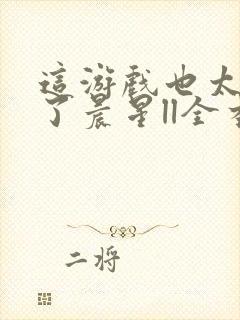 這游戲也太
了晨星||全
二将